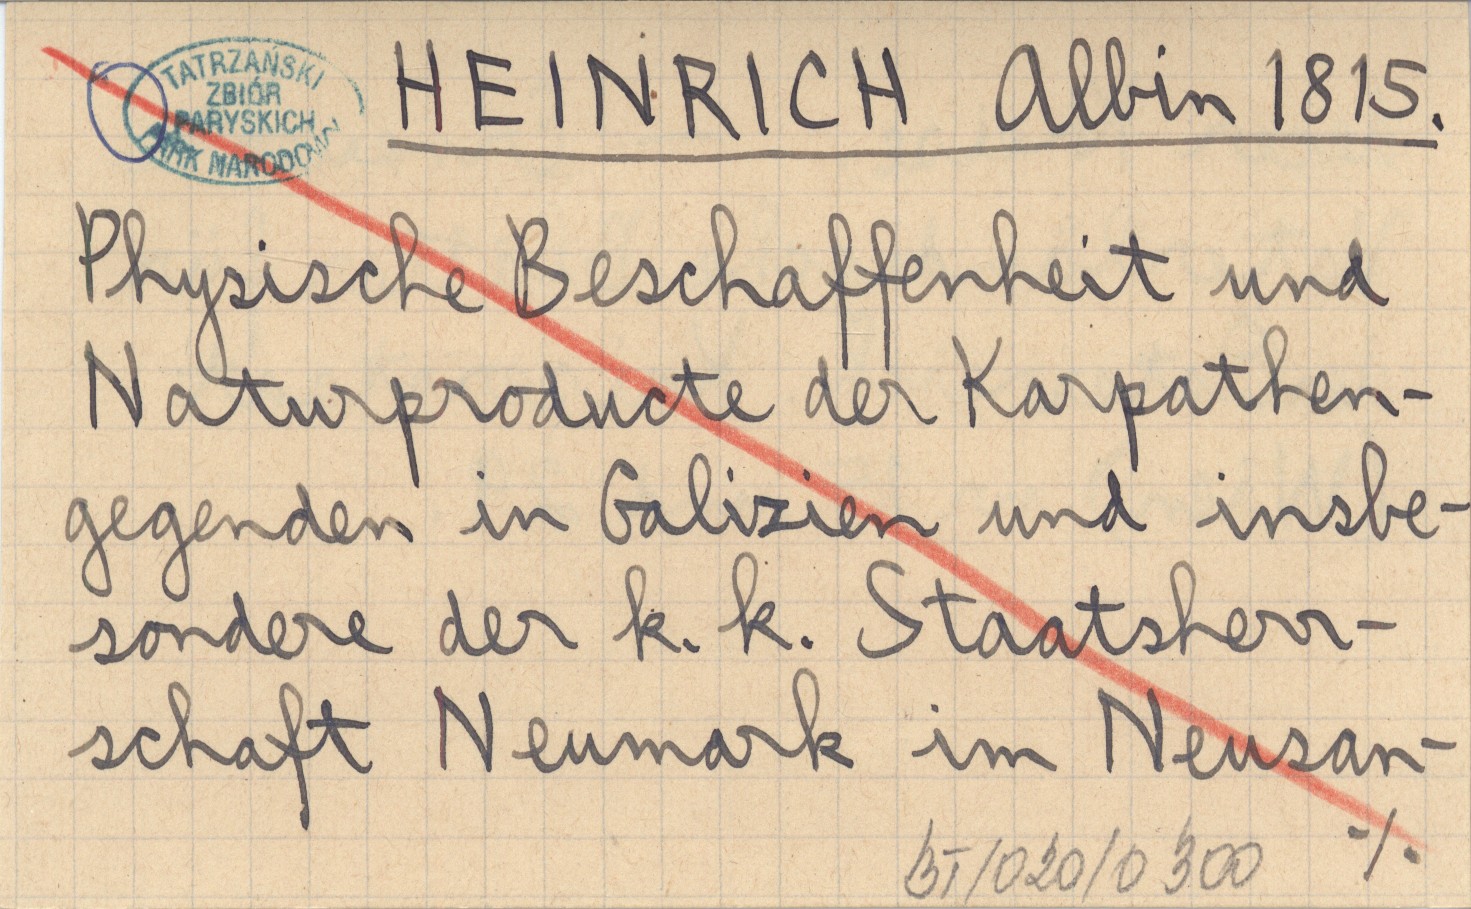 TATRZAŃSKI
ZBIÓR
PARYSKICH
PARK NARODOWY
HEINRICH Albin 1815.
Physische Beschaffenheit und
Naturproducte der Karpathen-
gegenden in Galizien und insbe-
sondere der k. k. Staatsherr-
schaft Neumark im Neusan-
./.
BT/020/0300